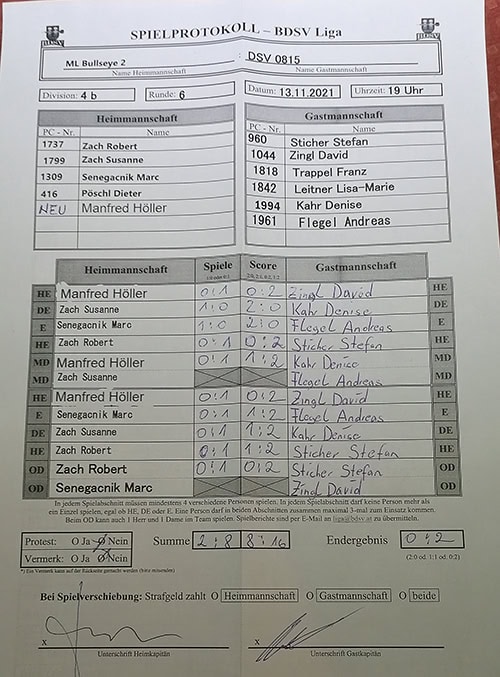 SPIELPROTOKOLL – BDSV Liga
ML Bullseye 2 DSV 0815
Name Heimmannschaft Name Gastmannschaft
Division: 4 b Runde: 6 Datum: 13.11.2021 Uhrzeit: 19 Uhr
Heimmannschaft Gastmannschaft
PC - Nr. Name PC - Nr. Name
1737 Zach Robert 960 Sticher Stefan
1799 Zach Susanne 1044 Zingl David
1309 Senegacnik Marc 1818 Trappel Franz
416 Pöschl Dieter 1842 Leitner Lisa-Marie
NEU Manfred Höller 1994 Kahr Denise
1961 Flegel Andreas
Heimmannschaft Spiele Score Gastmannschaft
HE Manfred Höller 0:1 0:2 Zingl David HE
DE Zach Susanne 1:0 2:0 Kahr Denise DE
E Senegacnik Marc 1:0 2:0 Flegel Andreas E
HE Zach Robert 0:1 0:2 Sticher Stefan HE
MD Manfred Höller 0:1 1:2 Kahr Denise MD
MD Zach Susanne Flegel Andreas MD
HE Manfred Höller 0:1 0:2 Zingl David HE
E Senegacnik Marc 0:1 1:2 Flegel Andreas E
DE Zach Susanne 0:1 1:2 Kahr Denise DE
HE Zach Robert 0:1 1:2 Sticher Stefan HE
OD Zach Robert 0:1 0:2 Sticher Stefan OD
OD Senegacnik Marc Zingl David OD
In jedem Spielabschnitt müssen mindestens 4 verschiedene Personen spielen. In jedem Spielabschnitt darf keine Person mehr als
ein Einzel spielen, egal ob HE, DE oder E. Eine Person darf in beiden Abschnitten zusammen maximal 3-mal zum Einsatz kommen.
Beim OD kann auch 1 Herr und 1 Dame im Team spielen. Spielberichte sind per E-Mail an liga@bdsv.at zu übermitteln.
Protest: O Ja O Nein Summe 2:8 8:16 Endergebnis 0:2
Vermerk: O Ja O Nein (2:0 od. 1:1 od. 0:2)
*) Ein Vermerk kann auf der Rückseite gemacht werden
Bei Spielverschiebung: Strafgeld zahlt O Heimmannschaft O Gastmannschaft O beide
X X
Unterschrift Heimkapitän Unterschrift Gastkapitän